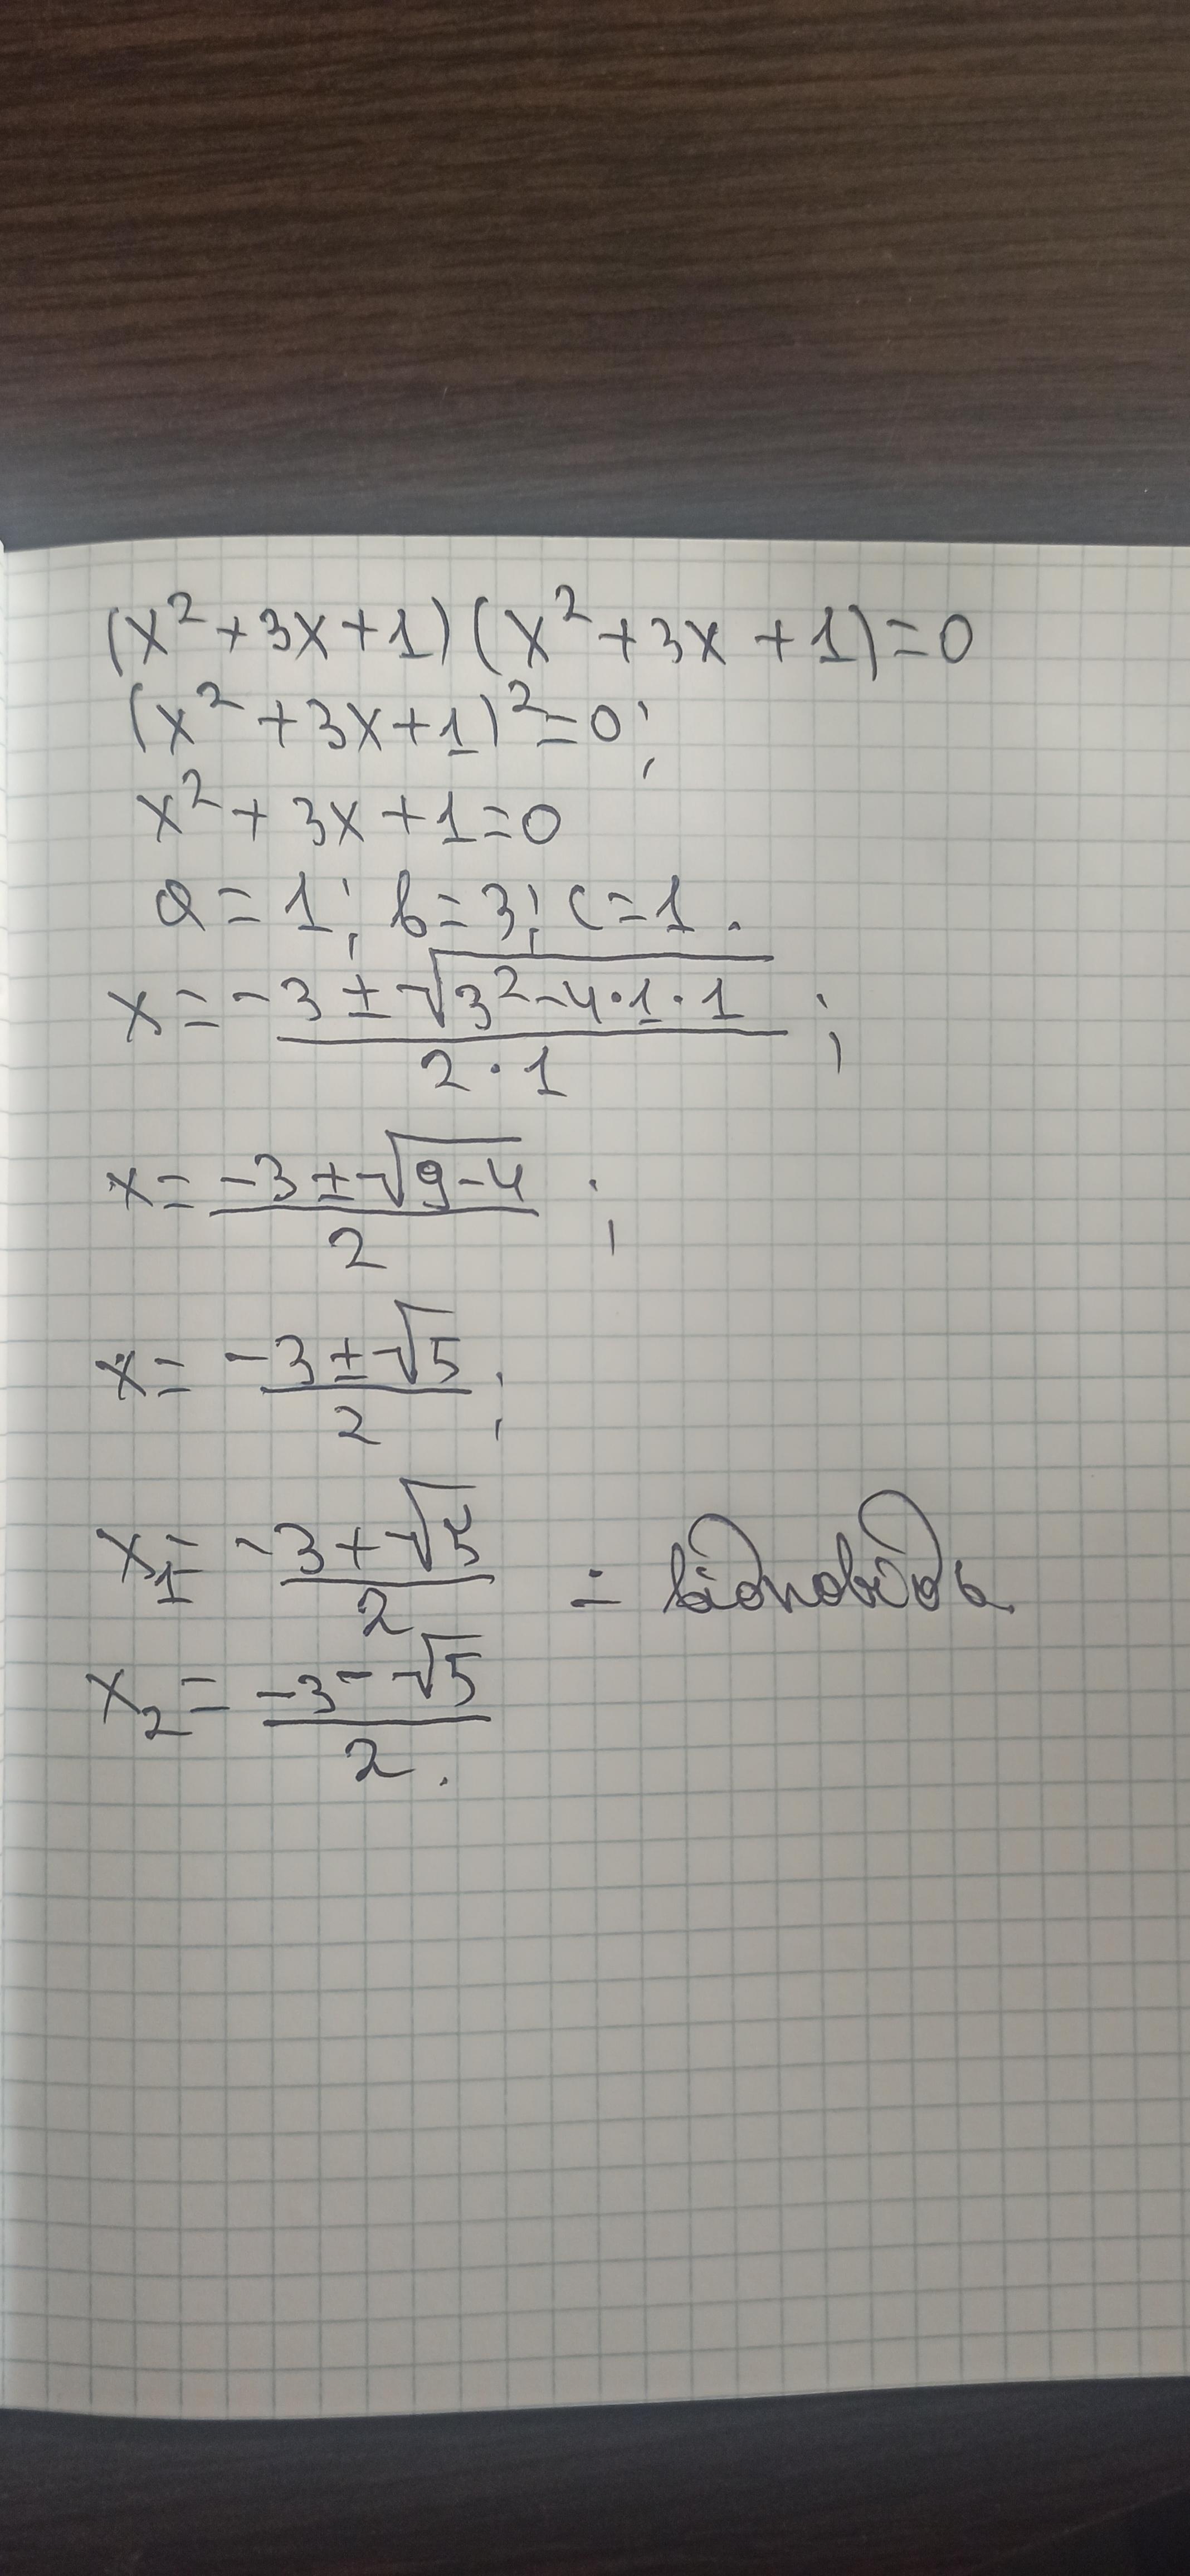 (x²+3x+1)(x²+3x+1)=0
(x²+3x+1)²=0;
x²+3x+1=0
a=1; b=3; c=1.
x = (-3±√(3²-4·1·1))/(2·1);
x = (-3±√(9-4))/2;
x = (-3±√5)/2;
x₁ = (-3+√5)/2 - відповідь
x₂ = (-3-√5)/2.